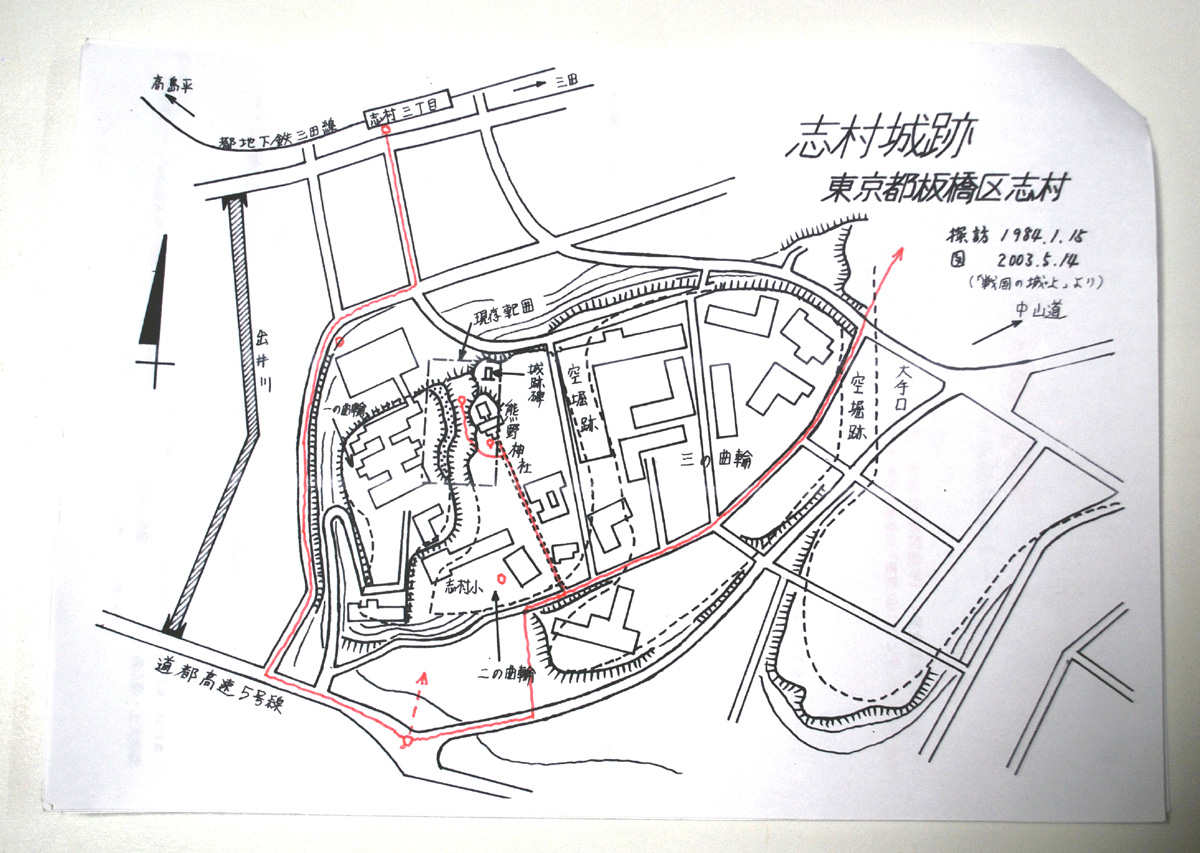 志村城跡
東京都板橋区志村
探訪 1984.1.15
図 2003.5.14
(「戦国の城上」より)
高島平
三田
志村三丁目
都地下鉄三田線
中山道
出井川
現存範囲
城跡碑
熊野神社
空堀跡
空堀跡
大手口
一の曲輪
三の曲輪
志村小
二の曲輪
道都高速5号線